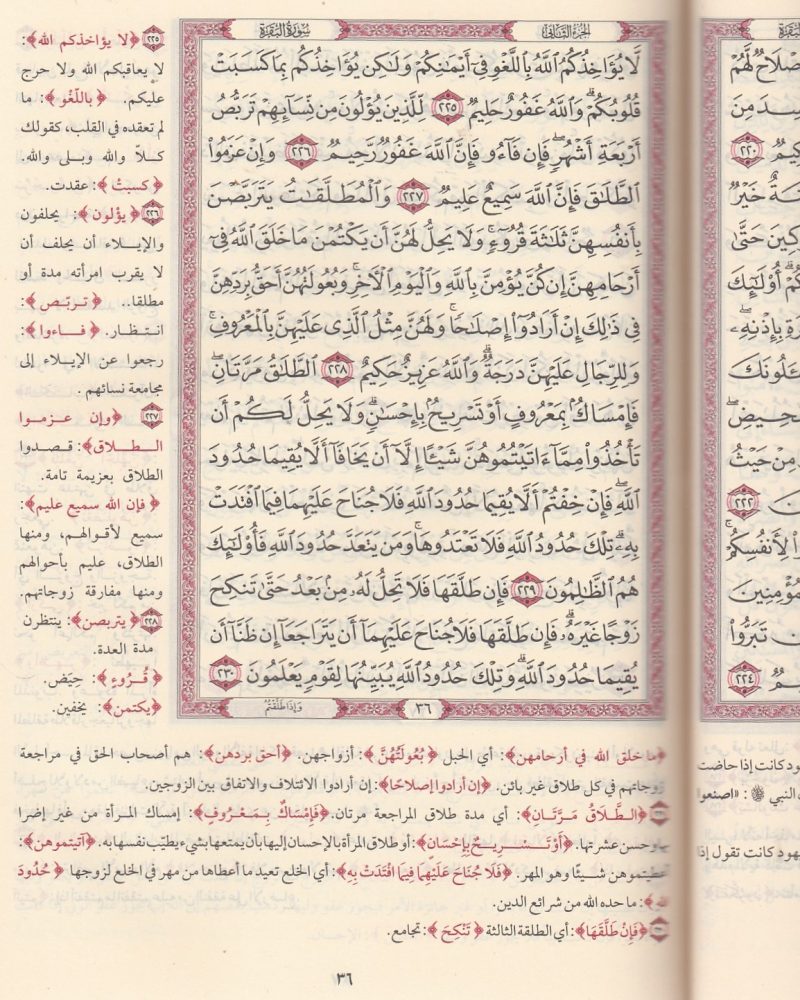 سورة البقرة
الجزء الثاني
لَّا يُؤَاخِذُكُمُ اللَّهُ بِاللَّغْوِ فِي أَيْمَانِكُمْ وَلَٰكِن يُؤَاخِذُكُم بِمَا كَسَبَتْ
قُلُوبُكُمْ ۗ وَاللَّهُ غَفُورٌ حَلِيمٌ ٢٢٥ لِّلَّذِينَ يُؤْلُونَ مِن نِّسَائِهِمْ تَرَبُّصُ
أَرْبَعَةِ أَشْهُرٍ ۖ فَإِن فَاءُو فَإِنَّ اللَّهَ غَفُورٌ رَّحِيمٌ ٢٢٦ وَإِنْ عَزَمُوا
الطَّلَاقَ فَإِنَّ اللَّهَ سَمِيعٌ عَلِيمٌ ٢٢٧ وَالْمُطَلَّقَاتُ يَتَرَبَّصْنَ
بِأَنفُسِهِنَّ ثَلَاثَةَ قُرُوءٍ ۚ وَلَا يَحِلُّ لَهُنَّ أَن يَكْتُمْنَ مَا خَلَقَ اللَّهُ فِي
أَرْحَامِهِنَّ إِن كُنَّ يُؤْمِنَّ بِاللَّهِ وَالْيَوْمِ الْآخِرِ ۚ وَبُعُولَتُهُنَّ أَحَقُّ بِرَدِّهِنَّ
فِي ذَٰلِكَ إِنْ أَرَادُوا إِصْلَاحًا ۚ وَلَهُنَّ مِثْلُ الَّذِي عَلَيْهِنَّ بِالْمَعْرُوفِ ۚ
وَلِلرِّجَالِ عَلَيْهِنَّ دَرَجَةٌ ۗ وَاللَّهُ عَزِيزٌ حَكِيمٌ ٢٢٨ الطَّلَاقُ مَرَّتَانِ ۖ
فَإِمْسَاكٌ بِمَعْرُوفٍ أَوْ تَسْرِيحٌ بِإِحْسَانٍ ۗ وَلَا يَحِلُّ لَكُمْ أَن
تَأْخُذُوا مِمَّا آتَيْتُمُوهُنَّ شَيْئًا إِلَّا أَن يَخَافَا أَلَّا يُقِيمَا حُدُودَ
اللَّهِ ۖ فَإِنْ خِفْتُمْ أَلَّا يُقِيمَا حُدُودَ اللَّهِ فَلَا جُنَاحَ عَلَيْهِمَا فِيمَا افْتَدَتْ
بِهِ ۗ تِلْكَ حُدُودُ اللَّهِ فَلَا تَعْتَدُوهَا ۚ وَمَن يَتَعَدَّ حُدُودَ اللَّهِ فَأُولَٰئِكَ
هُمُ الظَّالِمُونَ ٢٢٩ فَإِن طَلَّقَهَا فَلَا تَحِلُّ لَهُ مِن بَعْدُ حَتَّىٰ تَنكِحَ
زَوْجًا غَيْرَهُ ۗ فَإِن طَلَّقَهَا فَلَا جُنَاحَ عَلَيْهِمَا أَن يَتَرَاجَعَا إِن ظَنَّا أَن
يُقِيمَا حُدُودَ اللَّهِ ۗ وَتِلْكَ حُدُودُ اللَّهِ يُبَيِّنُهَا لِقَوْمٍ يَعْلَمُونَ ٢٣٠
٣٦
وَإِذَا طَلَّقْتُمُ
٢٢٥ ﴿لا يؤاخذكم الله﴾:
لا يعاقبكم الله ولا حرج
عليكم. ﴿باللَّغْو﴾: ما
لم تعقده في القلب، كقولك
كلاّ والله وبلى والله.
﴿كسبتْ﴾: عقدت.
٢٢٦ ﴿يؤلون﴾: يحلفون
والإيلاء أن يحلف أن
لا يقرب امرأته مدة أو
مطلقا.. ﴿تربّص﴾:
انتظار. ﴿فاءوا﴾:
رجعوا عن الإيلاء إلى
مجامعة نسائهم.
٢٢٧ ﴿وإن عزموا
الطلاق﴾: قصدوا
الطلاق بعزيمة تامة.
﴿فإن الله سميع عليم﴾:
سميع لأقوالهم، ومنها
الطلاق، عليم بأحوالهم
ومنها مفارقة زوجاتهم.
٢٢٨ ﴿يتربصن﴾: ينتظرن
مدة العدة.
﴿قُرُوءٍ﴾: حِيَض.
﴿يكتمن﴾: يخفين.
﴿ما خلق الله في أرحامهن﴾: أي الحبل ﴿بُعُولَتُهُنَّ﴾: أزواجهن. ﴿أحق بردهن﴾: هم أصحاب الحق في مراجعة
زوجاتهم في كل طلاق غير بائن. ﴿إن أرادوا إصلاحًا﴾: إن أرادوا الائتلاف والاتفاق بين الزوجين.
﴿الطَّلاقُ مَرَّتَان﴾: أي مدة طلاق المراجعة مرتان. ﴿فَإِمْسَاكٌ بِمَعْرُوفٍ﴾: إمساك المرأة من غير إضرا
وحسن عشرتها. ﴿أَوْ تَسْرِيحٌ بِإِحْسَان﴾: أو طلاق المرأة بالإحسان إليها بأن يمتعها بشيء يطيّب نفسها به. ﴿آتيتموهن﴾:
أعطيتموهن شيئًا وهو المهر. ﴿فَلَا جُنَاحَ عَلَيْهِمَا فِيمَا افْتَدَتْ بِهِ﴾: أي الخلع تعيد ما أعطاها من مهر في الخلع لزوجها ﴿حُدُودَ
الله﴾: ما حده الله من شرائع الدين.
﴿فَإِنْ طَلَّقَهَا﴾: أي الطلقة الثالثة ﴿تَنْكِحَ﴾: تجامع.
٣٦
البقرة
صْلَاحٌ لَّهُمْ
ـسِدَ مِنَ
كِيمٌ ٢٢٠
ـةٌ خَيْرٌ
ـرِكِينَ حَتَّىٰ
ـكُمْ أُولَٰئِكَ
ـرَةِ بِإِذْنِهِ ۖ
ـئَلُونَكَ
ـحِيضِ ۖ
مِنْ حَيْثُ
ـنَ ٢٢٢
ـوا لِأَنفُسِكُمْ ۚ
ـمُؤْمِنِينَ
ـن تَبَرُّوا
ـمٌ ٢٢٤
ـود كانت إذا حاضت
النبي ﷺ: «اصنعوا
ـهود كانت تقول إذا